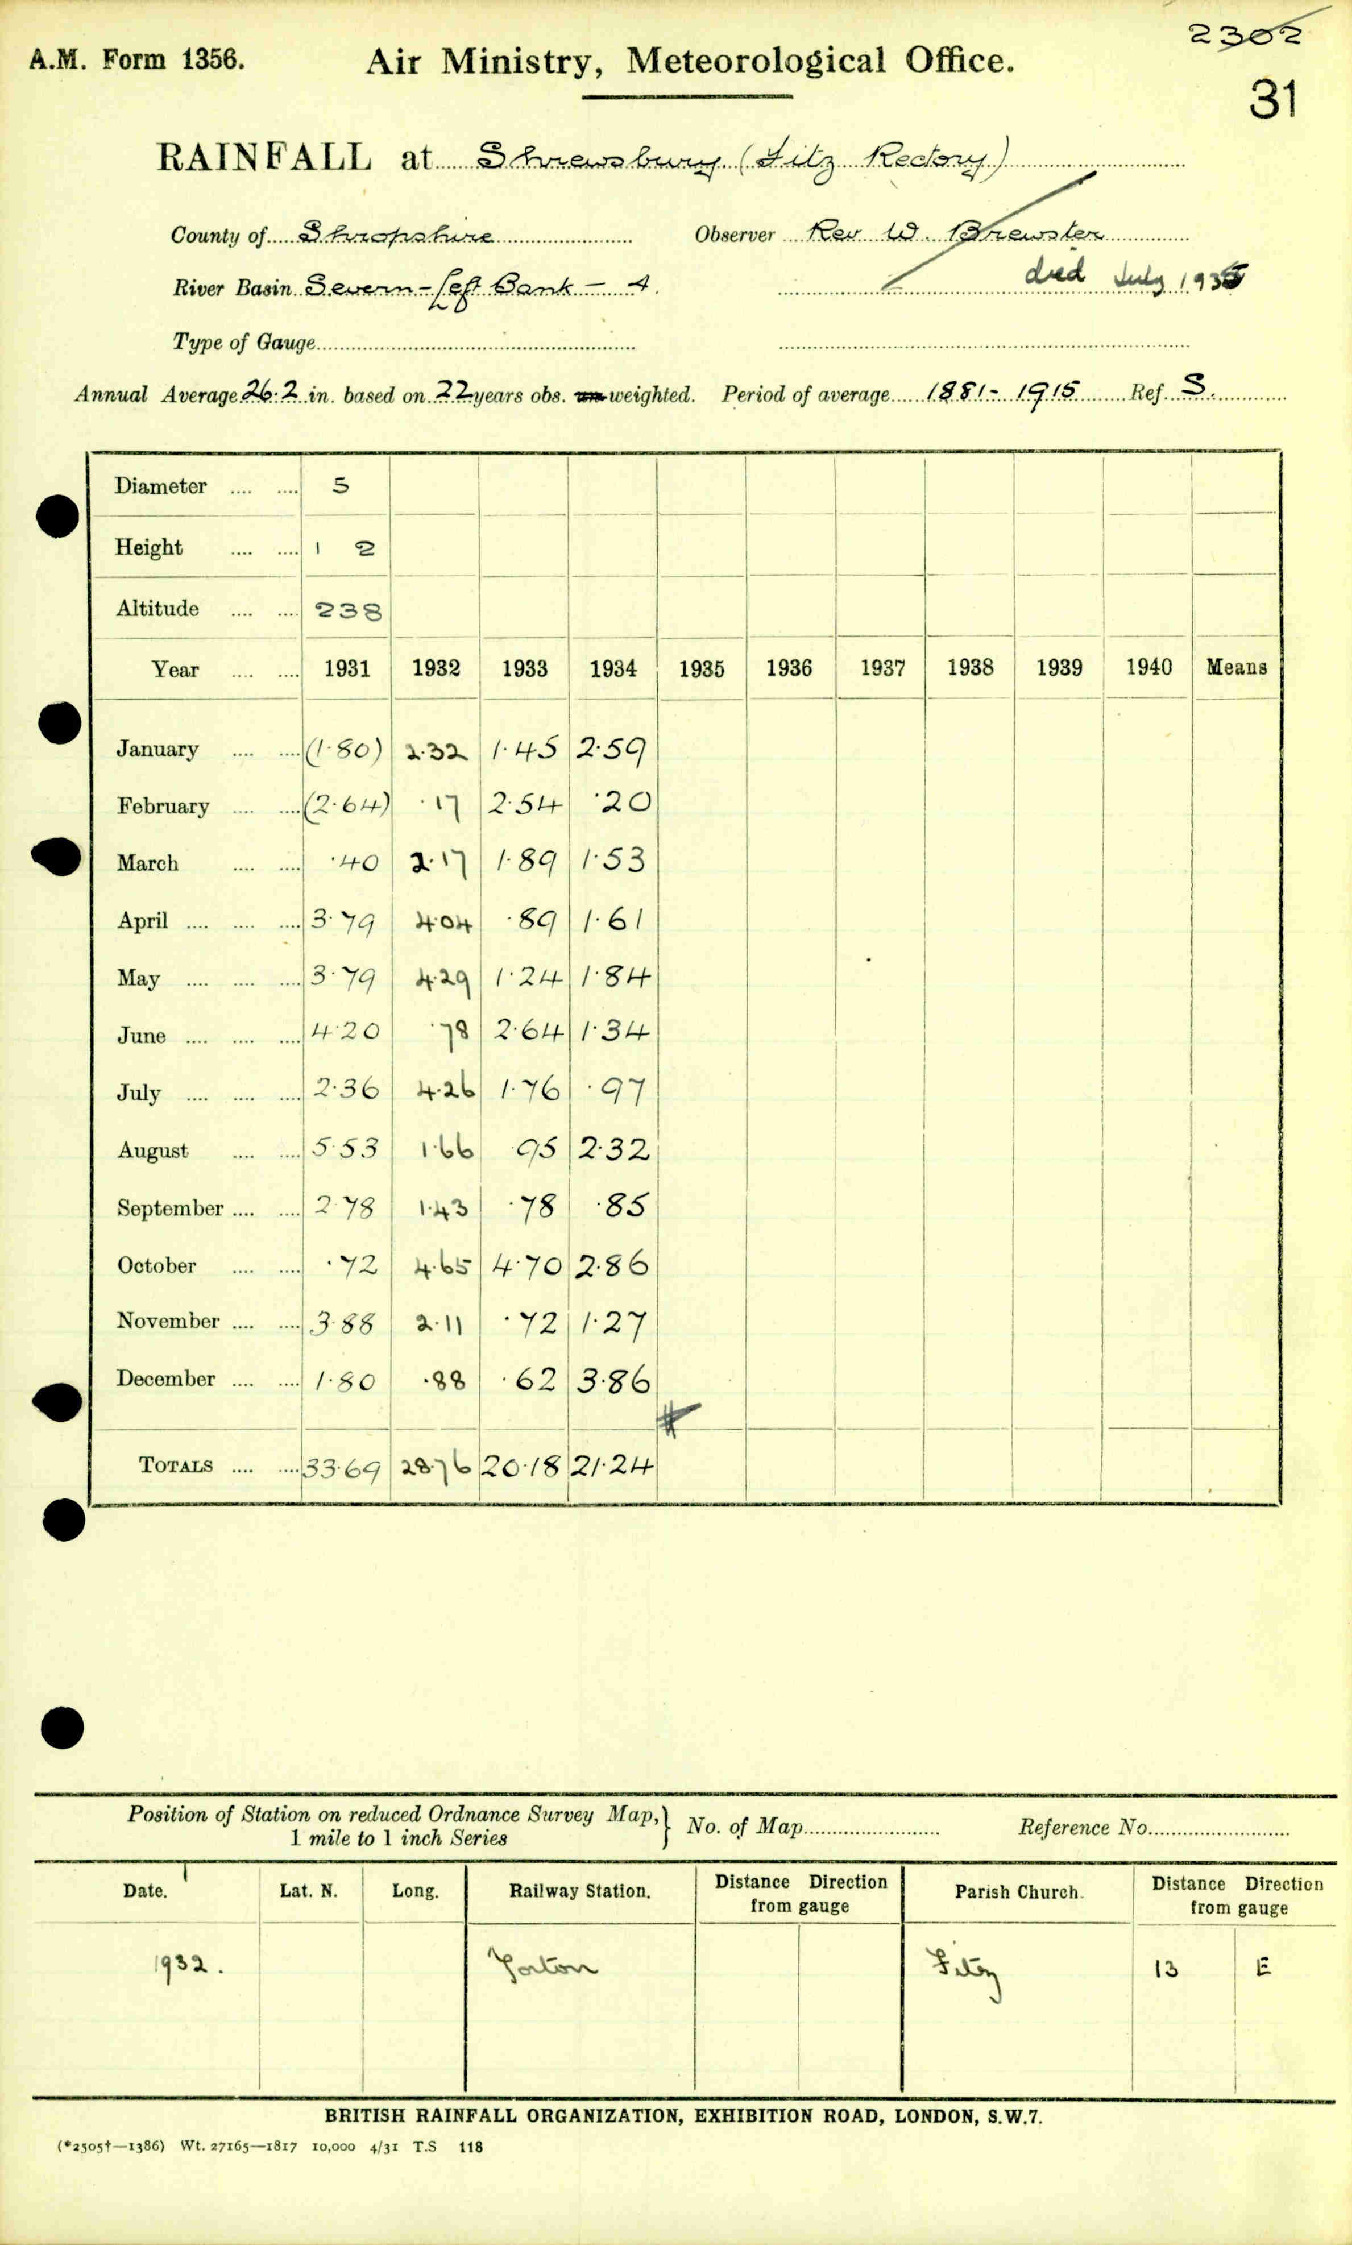 2302
A.M. Form 1356. Air Ministry, Meteorological Office.
31
RAINFALL at Shrewsbury (Fitz Rectory)
County of Shropshire Observer Rev W. Brewster
River Basin Severn - Left Bank - 4. died July 1935
Type of Gauge
Annual Average 26.2 in. based on 22 years obs. un weighted. Period of average 1881 - 1915 Ref. S.
Diameter .... .... 5
Height .... .... 1 2
Altitude .... .... 238
Year .... .... 1931 1932 1933 1934 1935 1936 1937 1938 1939 1940 Means
January .... .... (1.80) 2.32 1.45 2.59
February .... .... (2.64) .17 2.54 .20
March .... .... .40 2.17 1.89 1.53
April .... .... .... 3.79 4.04 .89 1.61
May .... .... .... 3.79 4.29 1.24 1.84
June .... .... .... 4.20 .78 2.64 1.34
July .... .... .... 2.36 4.26 1.76 .97
August .... .... 5.53 1.66 .95 2.32
September .... .... 2.78 1.43 .78 .85
October .... .... .72 4.65 4.70 2.86
November .... .... 3.88 2.11 .72 1.27
December .... .... 1.80 .88 .62 3.86
TOTALS .... .... 33.69 28.76 20.18 21.24
Position of Station on reduced Ordnance Survey Map, } No. of Map Reference No.
1 mile to 1 inch Series
Date. Lat. N. Long. Railway Station. Distance Direction from gauge Parish Church. Distance Direction from gauge
1932. Yorton Fitz 13 E
BRITISH RAINFALL ORGANIZATION, EXHIBITION ROAD, LONDON, S.W.7.
(*2505†—1386) Wt. 27165—1817 10,000 4/31 T.S 118